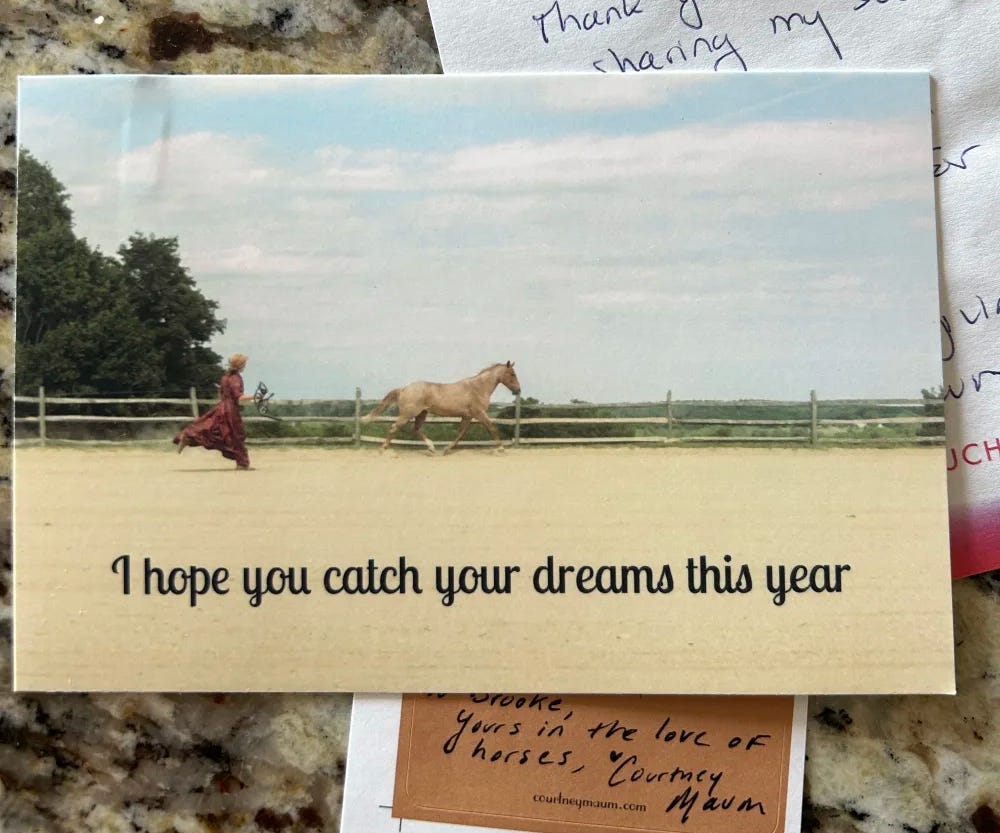 Thank
sharing my
I hope you catch your dreams this year
Brooke,
yours in the love of
horses, ♥Courtney
Maum
courtneymaum.com